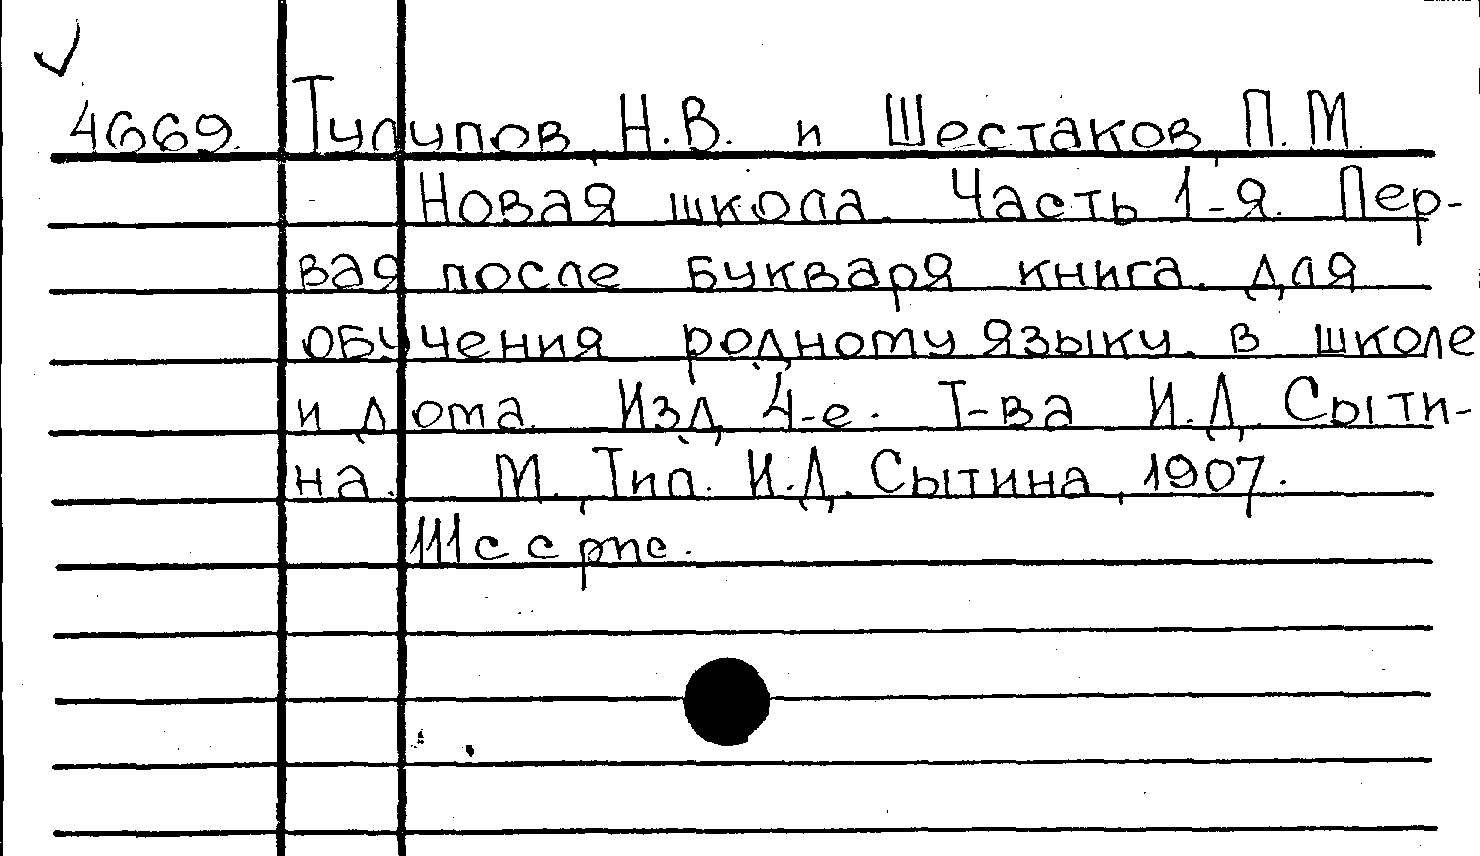 4669. Тулупов, Н.В. и Шестаков, П.М.
Новая школа. Часть 1-я. Пер-
вая после букваря книга для
обучения родному языку в школе
и дома. Изд. 4-е. Т-ва И.Д. Сыти-
на. М., Тип. И.Д. Сытина, 1907.
111 с с рис.